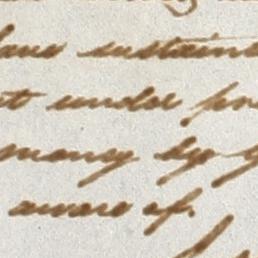 have sustaine
t under
money by
aware of.